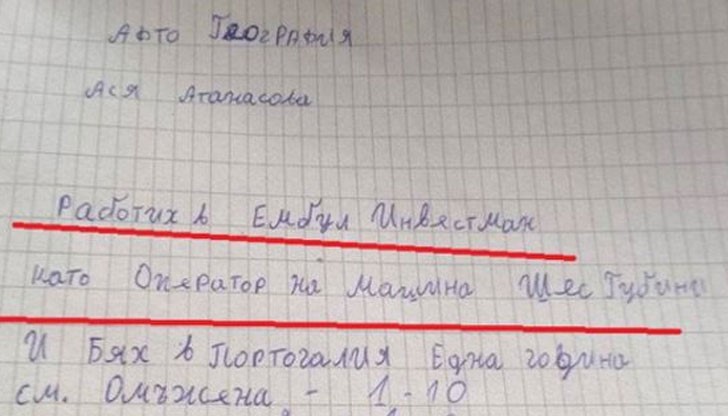 Афто География
Ася Атанасова
Работих в Ембул Инвестман
като Оператор на машина Шес Губини
И Бях в Портогалия Една година
см. Омъжена - 1-10